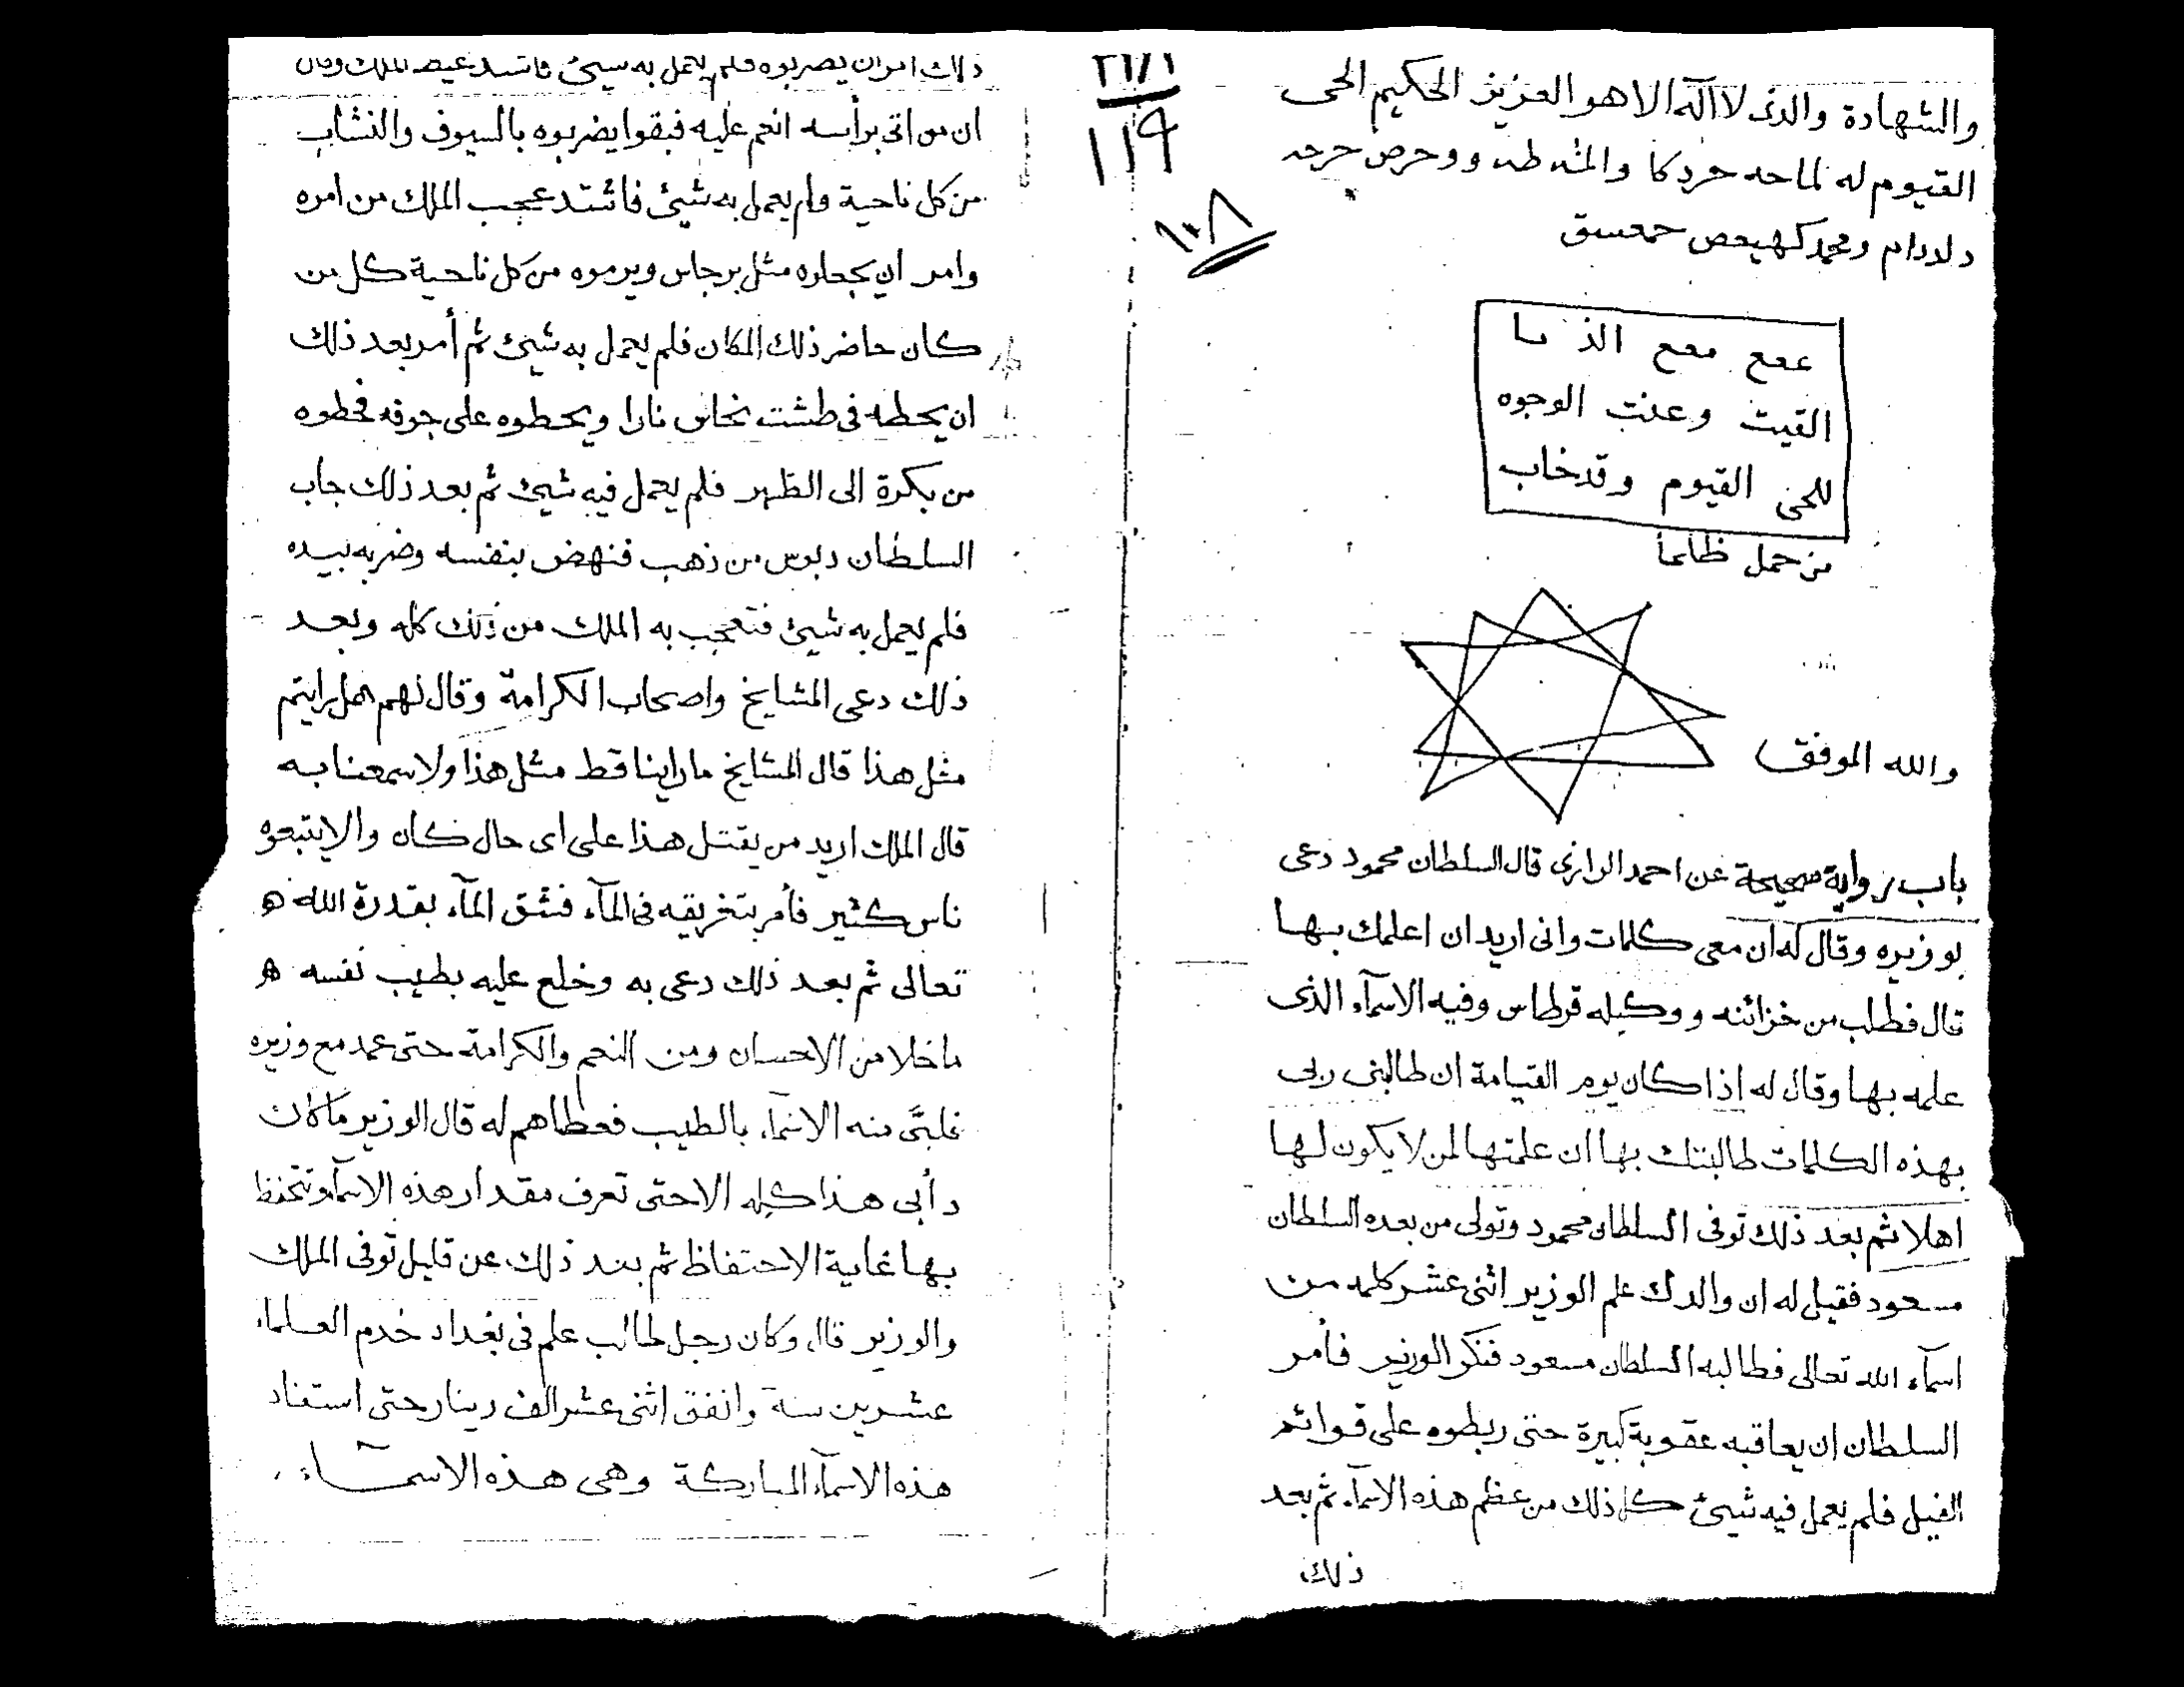 والشهادة والذى لا اله الا هو العزيز الحكيم الحى
القيوم له
ومحمد كهيعص حمعسق
عمع معع الذ
القيت وعنت الوجوه
للحى القيوم وقد خاب
من حمل ظلما
والله الموفق
باب رواية صحيحة عن احمد الرازى قال السلطان محمود دعى
بوزيره وقال له ان معى كلمات وانى اريد ان اعلمك بها
قال فطلب من خزائنه ووكيله قرطاس وفيه الاسمآء الذى
علمه بها وقال له اذا كان يوم القيامة ان طالبنى ربى
بهذه الكلمات طالبتك بها ان علمتها لمن لا يكون لها
اهلا ثم بعد ذلك توفى السلطان محمود وتولى من بعده السلطان
مسعود فقيل له ان والدك علم الوزير اثنى عشر كلمه من
اسمآء الله تعالى فطالبه السلطان مسعود فنكر الوزير فأمر
السلطان ان يعاقبه عقوبة كبيرة حتى ربطوه على قوائم
الفيل فلم يعمل فيه شيئ كل ذلك من عظم هذه الاسمآء ثم بعد
ذلك
٢٦/١
١١٩
١٠٨
ذلك امر ان يضربوه فلم يعمل به شيئ فاشتد غيض الملك وقال
ان من اتى برأسه انعم عليه فبقوا يضربوه بالسيوف والنشاب
من كل ناحية ولم يعمل به شيئ فاشتد عجب الملك من امره
وامر ان يجعلوه مثل برجاس ويرموه من كل ناحية كل من
كان حاضر ذلك المكان فلم يعمل به شيئ ثم أمر بعد ذلك
ان يحطه فى طشت نحاس نارا ويحطوه على جوفه فحطوه
من بكرة الى الظهر فلم يعمل فيه شيئ ثم بعد ذلك جاب
السلطان دبوس من ذهب فنهض بنفسه وضربه بيده
فلم يعمل به شيئ فتعجب به الملك من ذلك كله وبعد
ذلك دعى المشايخ واصحاب الكرامة وقال لهم هل رايتم
مثل هذا قال المشايخ ما راينا قط مثل هذا ولا سمعنا به
قال الملك اريد من يقتل هذا على اى حال كان والا يتبعوه
ناس كثير فأمر بتغريقه فى المآء فشق المآء بقدرة الله ه
تعالى ثم بعد ذلك دعى به وخلع عليه بطيب نفسه ه
ما خلا من الاحسان ومن النعم والكرامة حتى عمد مع وزيره
منه الاسمآء بالطيب فعطاهم له قال الوزير ما كان
دأبى هذا كله الا حتى تعرف مقدار هذه الاسمآء وتحتفظ
بها غاية الاحتفاظ ثم بعد ذلك عن قليل توفى الملك
والوزير قال وكان رجل طالب علم فى بغداد خدم العلماء
عشرين سنة وانفق اثنى عشر الف دينار حتى استفاد
هذه الاسمآء المباركة وهى هذه الاسمـــآء